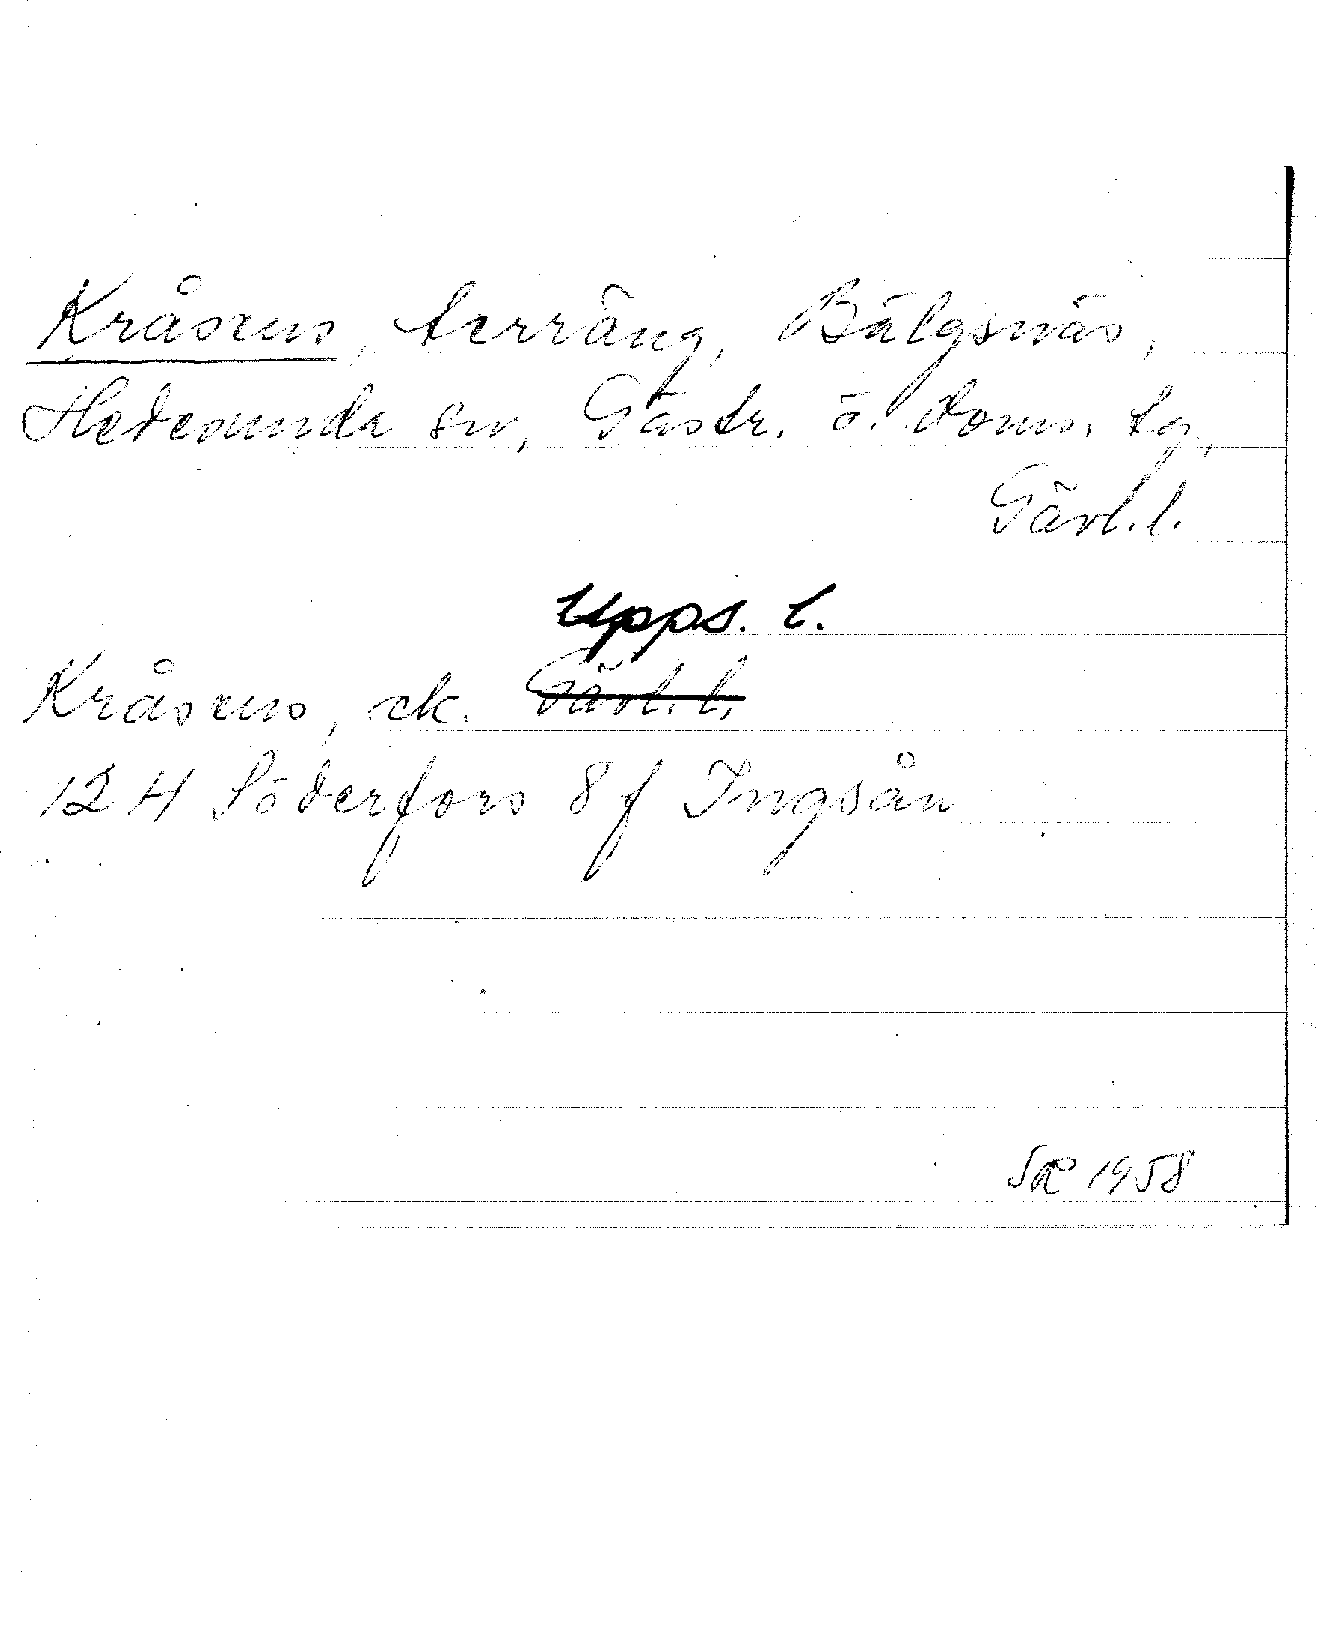 Kråsens, terräng, Bälgsnäs,
Hedesunda sn, Gästr. ö. doms. tg,
Gävl. l.
Upps. l.
Kråsens, ek. Gävl. l,
12 H Söderfors 8f Ingsån
SR 1958